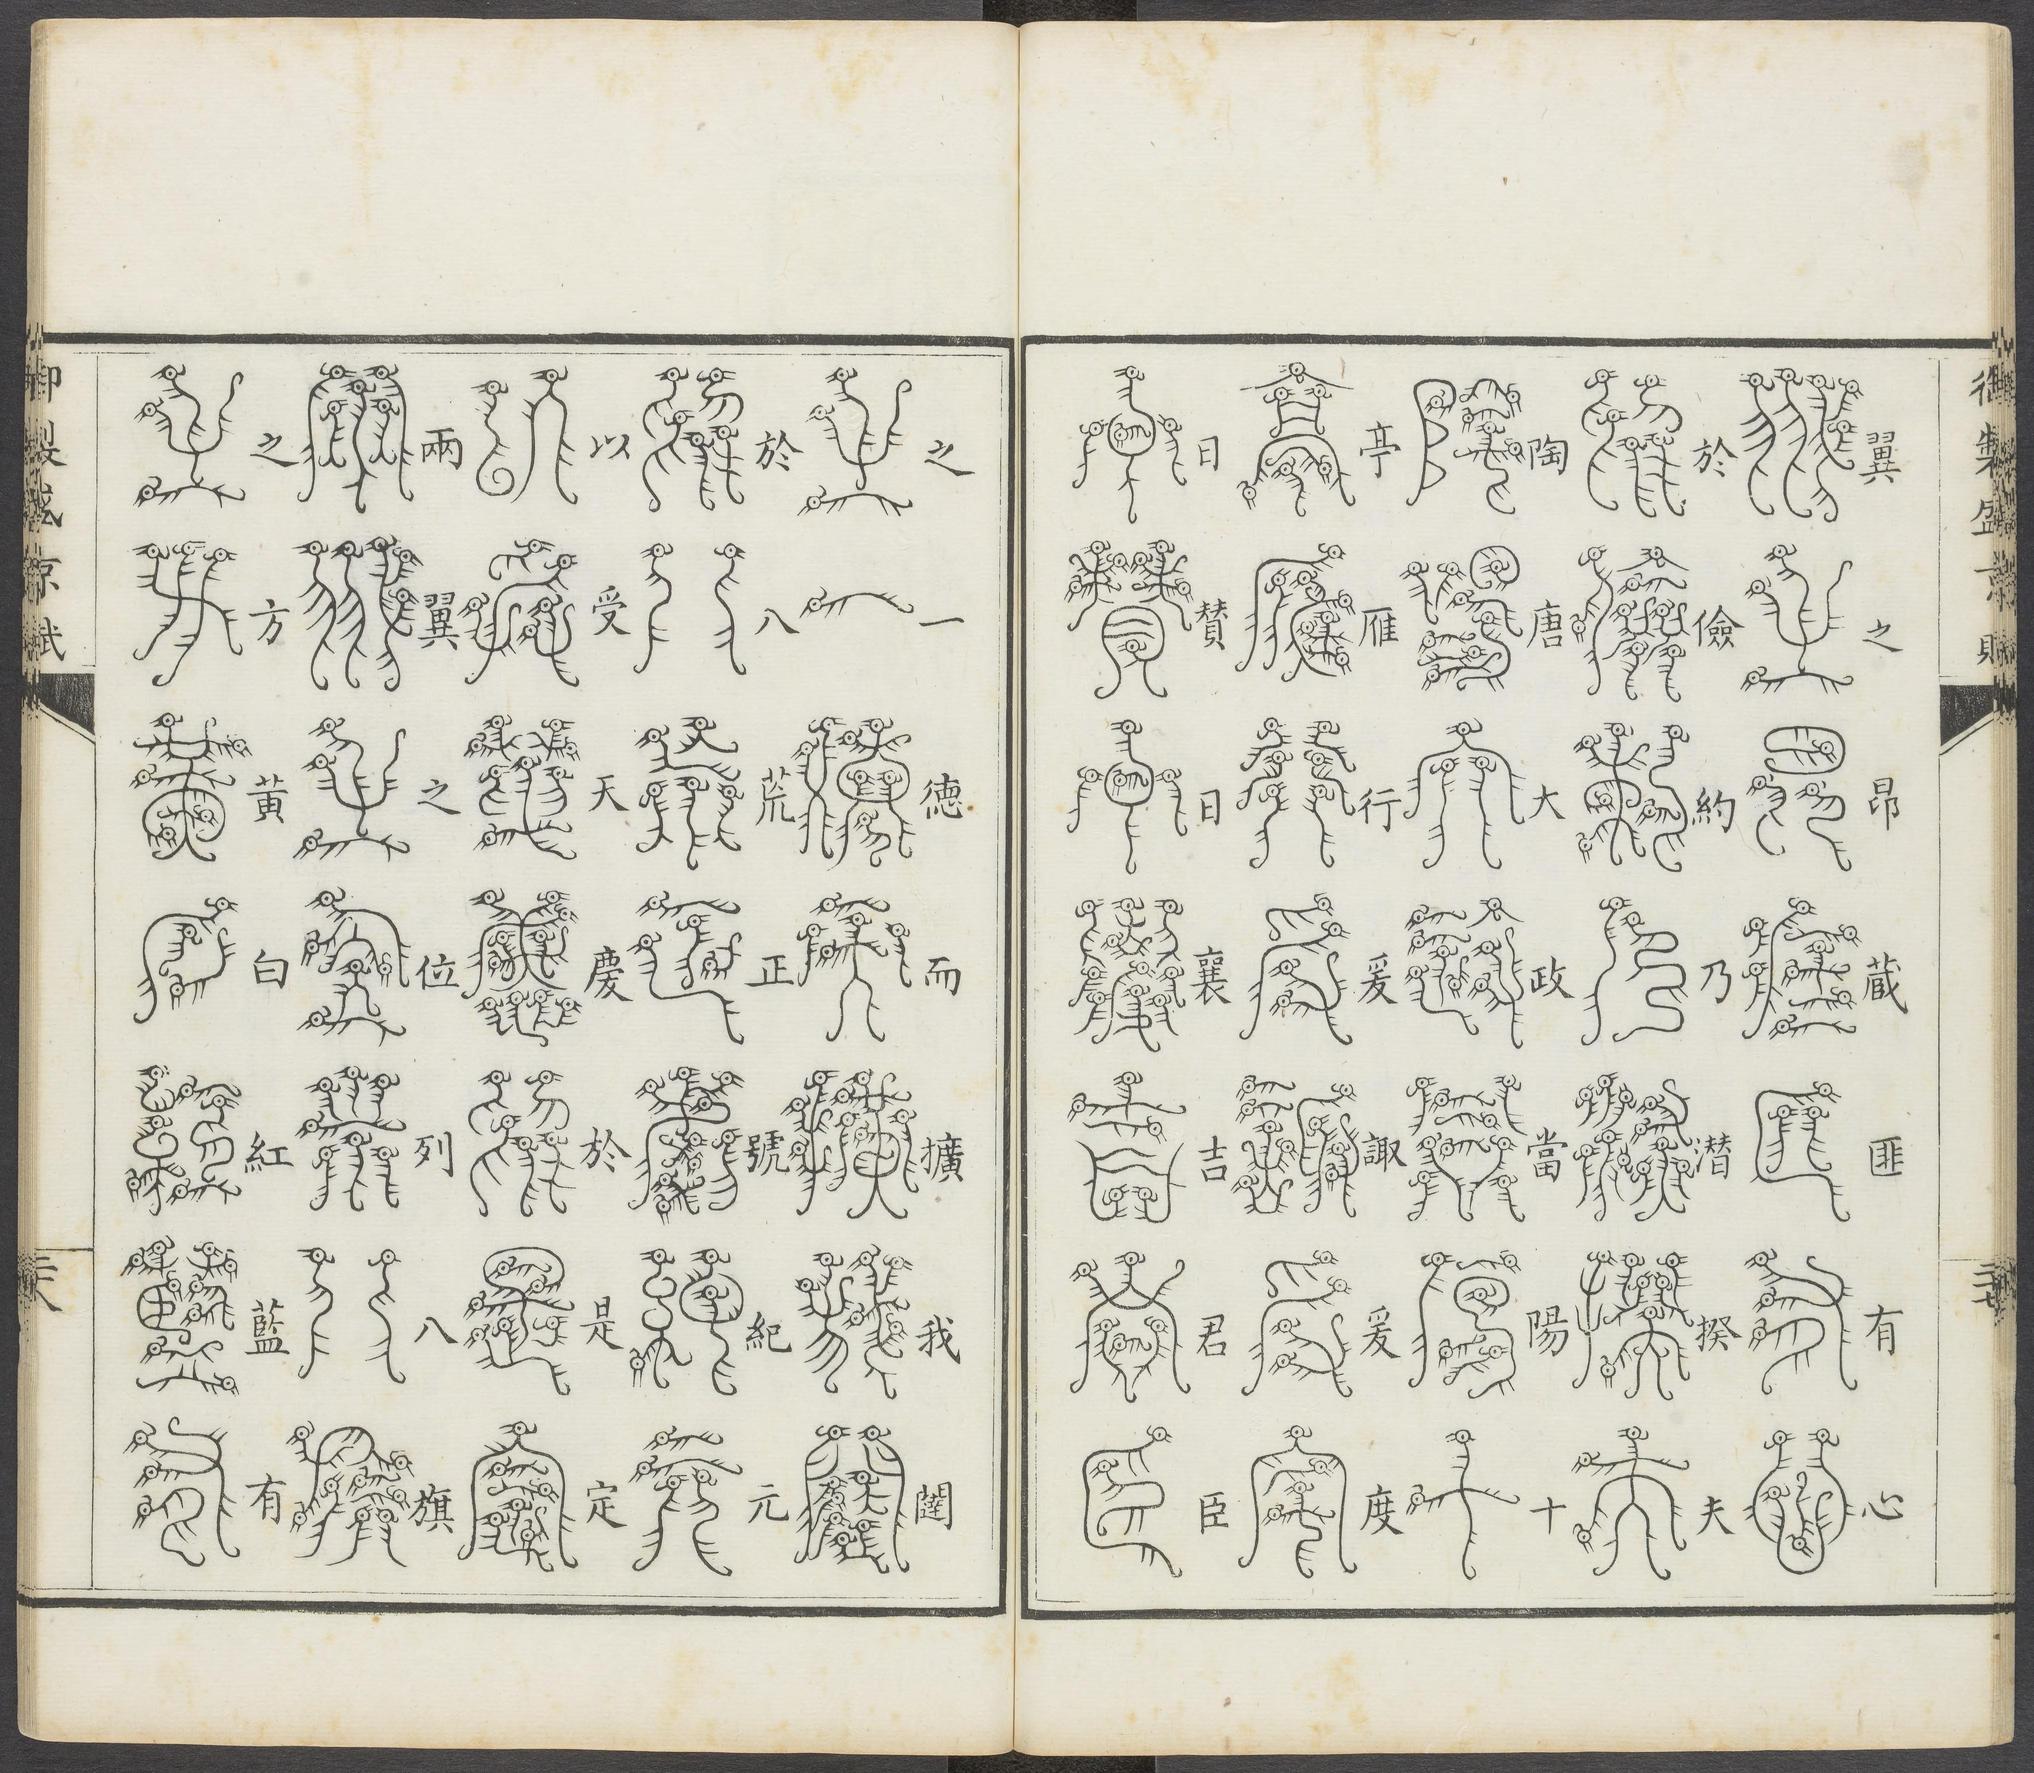 御製盛京賦
翼之昂蔵匪有心
於儉約乃潜揆夫
陶唐大政當陽十
亭雁行爰諏爰度
日賛日襄吉君臣
之一德而擴我闊
於八荒正號紀元
以受天慶於是定
兩翼之位列八旗
之方黃白紅藍有
御製盛京賦